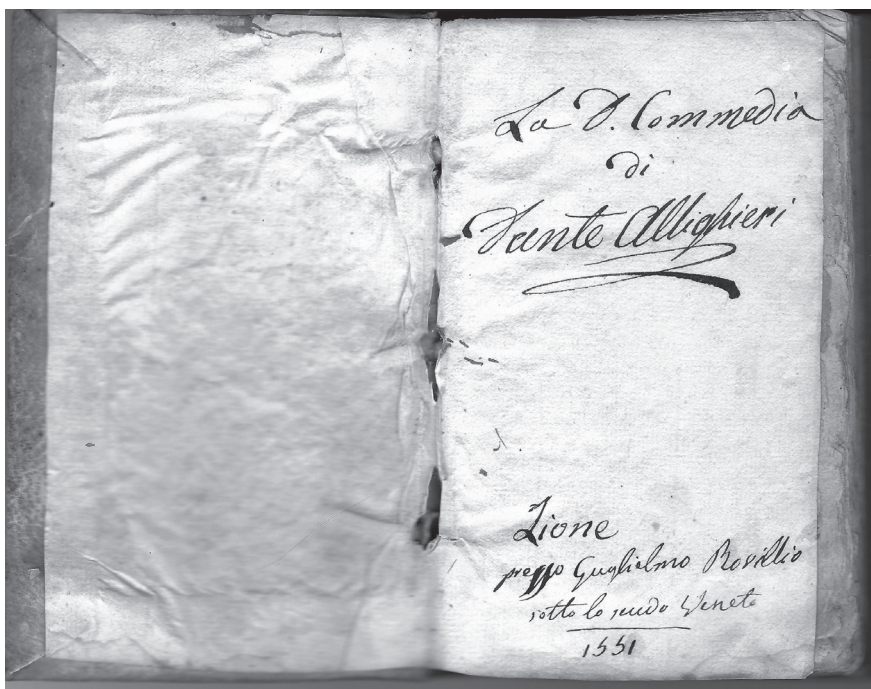 La D. Commedia
di
Dante Allighieri
Lione
presso Guglielmo Rovillio
sotto lo scudo Veneto
1551